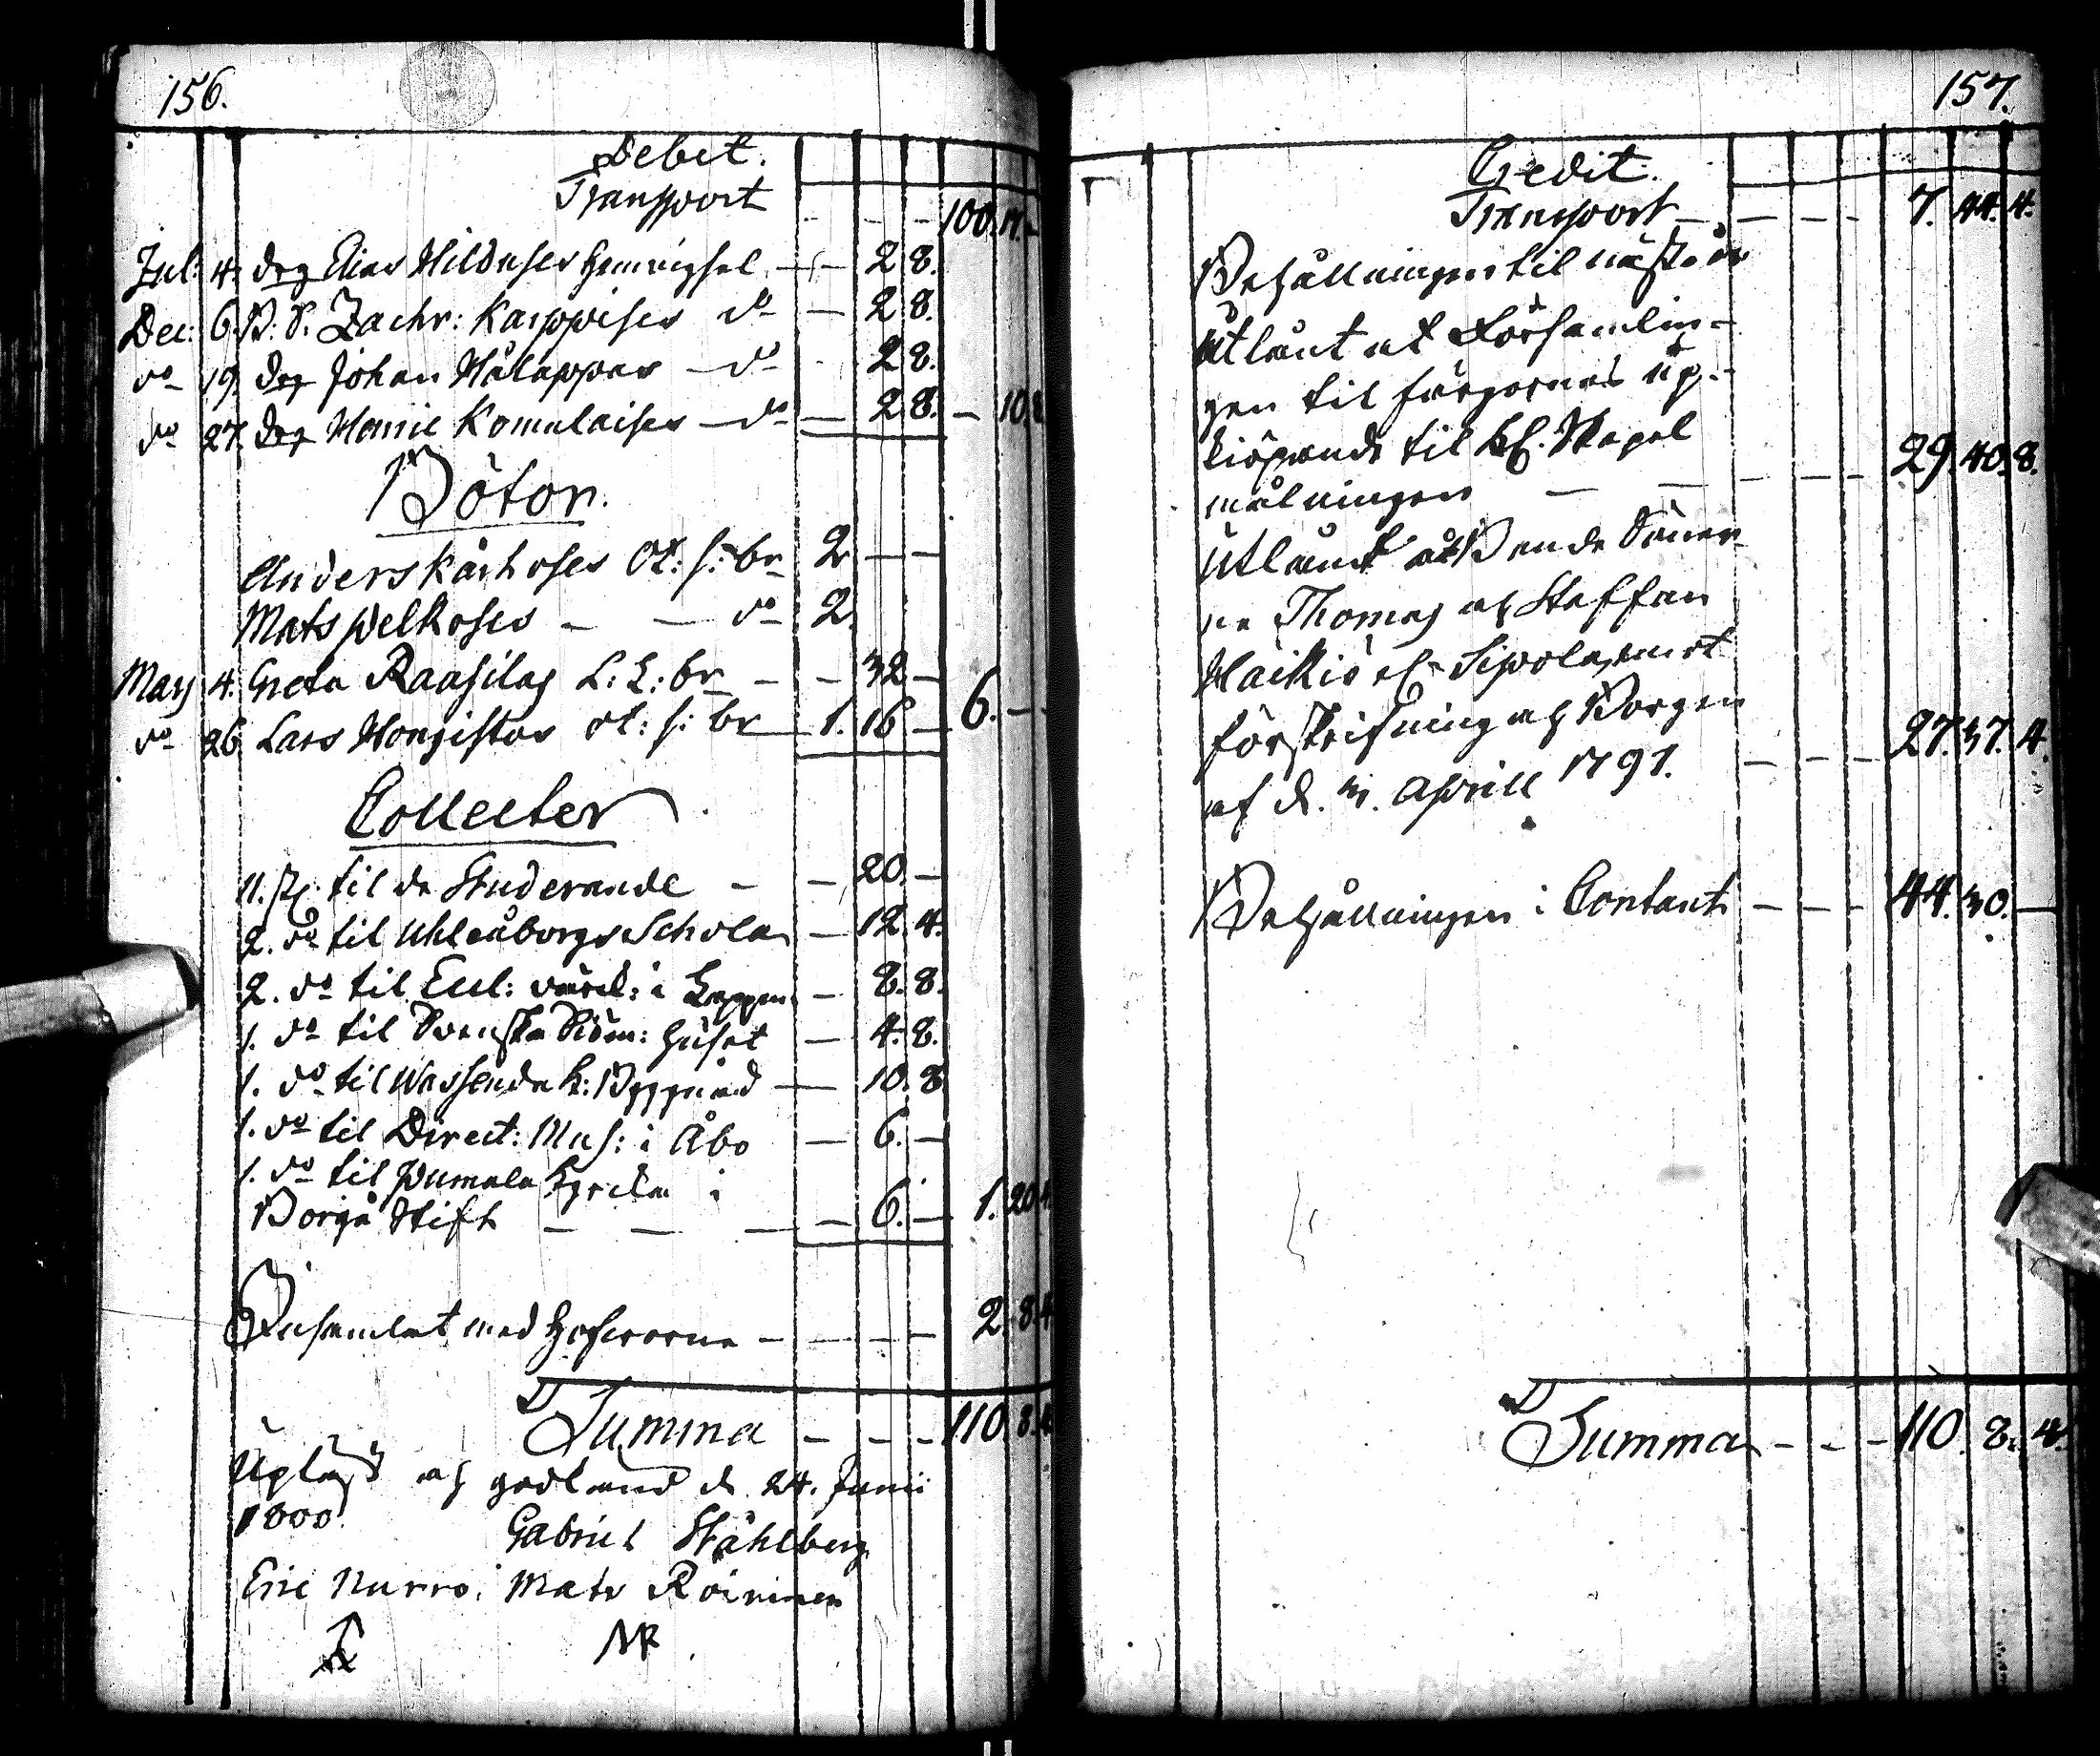 156.
Debet.
Transport - - - 100. 11. -
Jul: 4. drg Elias Hilduses hemvigsel - - 2 8.
Dec: 6. B: S. Zachr: Karppises do - 2 8.
do 19. drg Johan Hålappas do - 2 8.
do 27. drg Henric Komulaises do - 2 8. - 10. 8
Böter.
Anders Karhoses Ot: s: br 2 - -
Mats Pelkoses - - do 2.
Maij 4. Greta Raasilas L: L: br - - 32 -
do 26 Lars Hongistos ot: s: br 1. 16 - 6. - -
Collecter
11. st. til de Studerande - - 20. -
2. do til Uhleåborgs Schola - 12. 4.
2. do til Eccl: värcl: i Lappm. - 8. 8.
1. do til Svenska Siöm: huset - 4. 8.
1. do til Wassenda K: Byggnad - 10. 8
1. do til Direct: Mus: i Åbo - 6. -
1. do til Pumala Kyrcka i
Borgå Stift - - - - 6. - 1. 20. 4
Insamlat med Håfvorne - - - - 2. 8. 4
Summa - - - 110. 8. 4
Upläst och godkänd d. 24. Junii
1800.
Gabriel Ståhlberg
Eric Nurro. Mats Röininen
MR
157.
Credit.
Transport - - - - 7. 44. 4.
Behållningen til nästa år
Utlånt af Församlin-
gen til färgornas up-
kiöpande til Kl. Stapel
målningen - - - - - 29. 40. 8.
Utlånt åt Bonde Söner-
na Thomas och Staffan
Häikiö el. Sipola, emot
förskrifning och Borgen
af d. 3. Aprill 1791. - - - 27. 37. 4
Behållningen i Contant - - - 44. 30. -
Summa - - - 110. 8. 4.